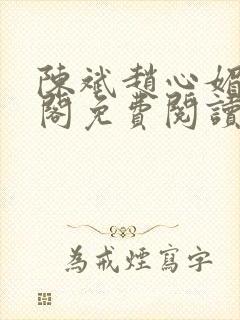 陳斌趙心媚
閣免費閱讀
為戒煙寫字